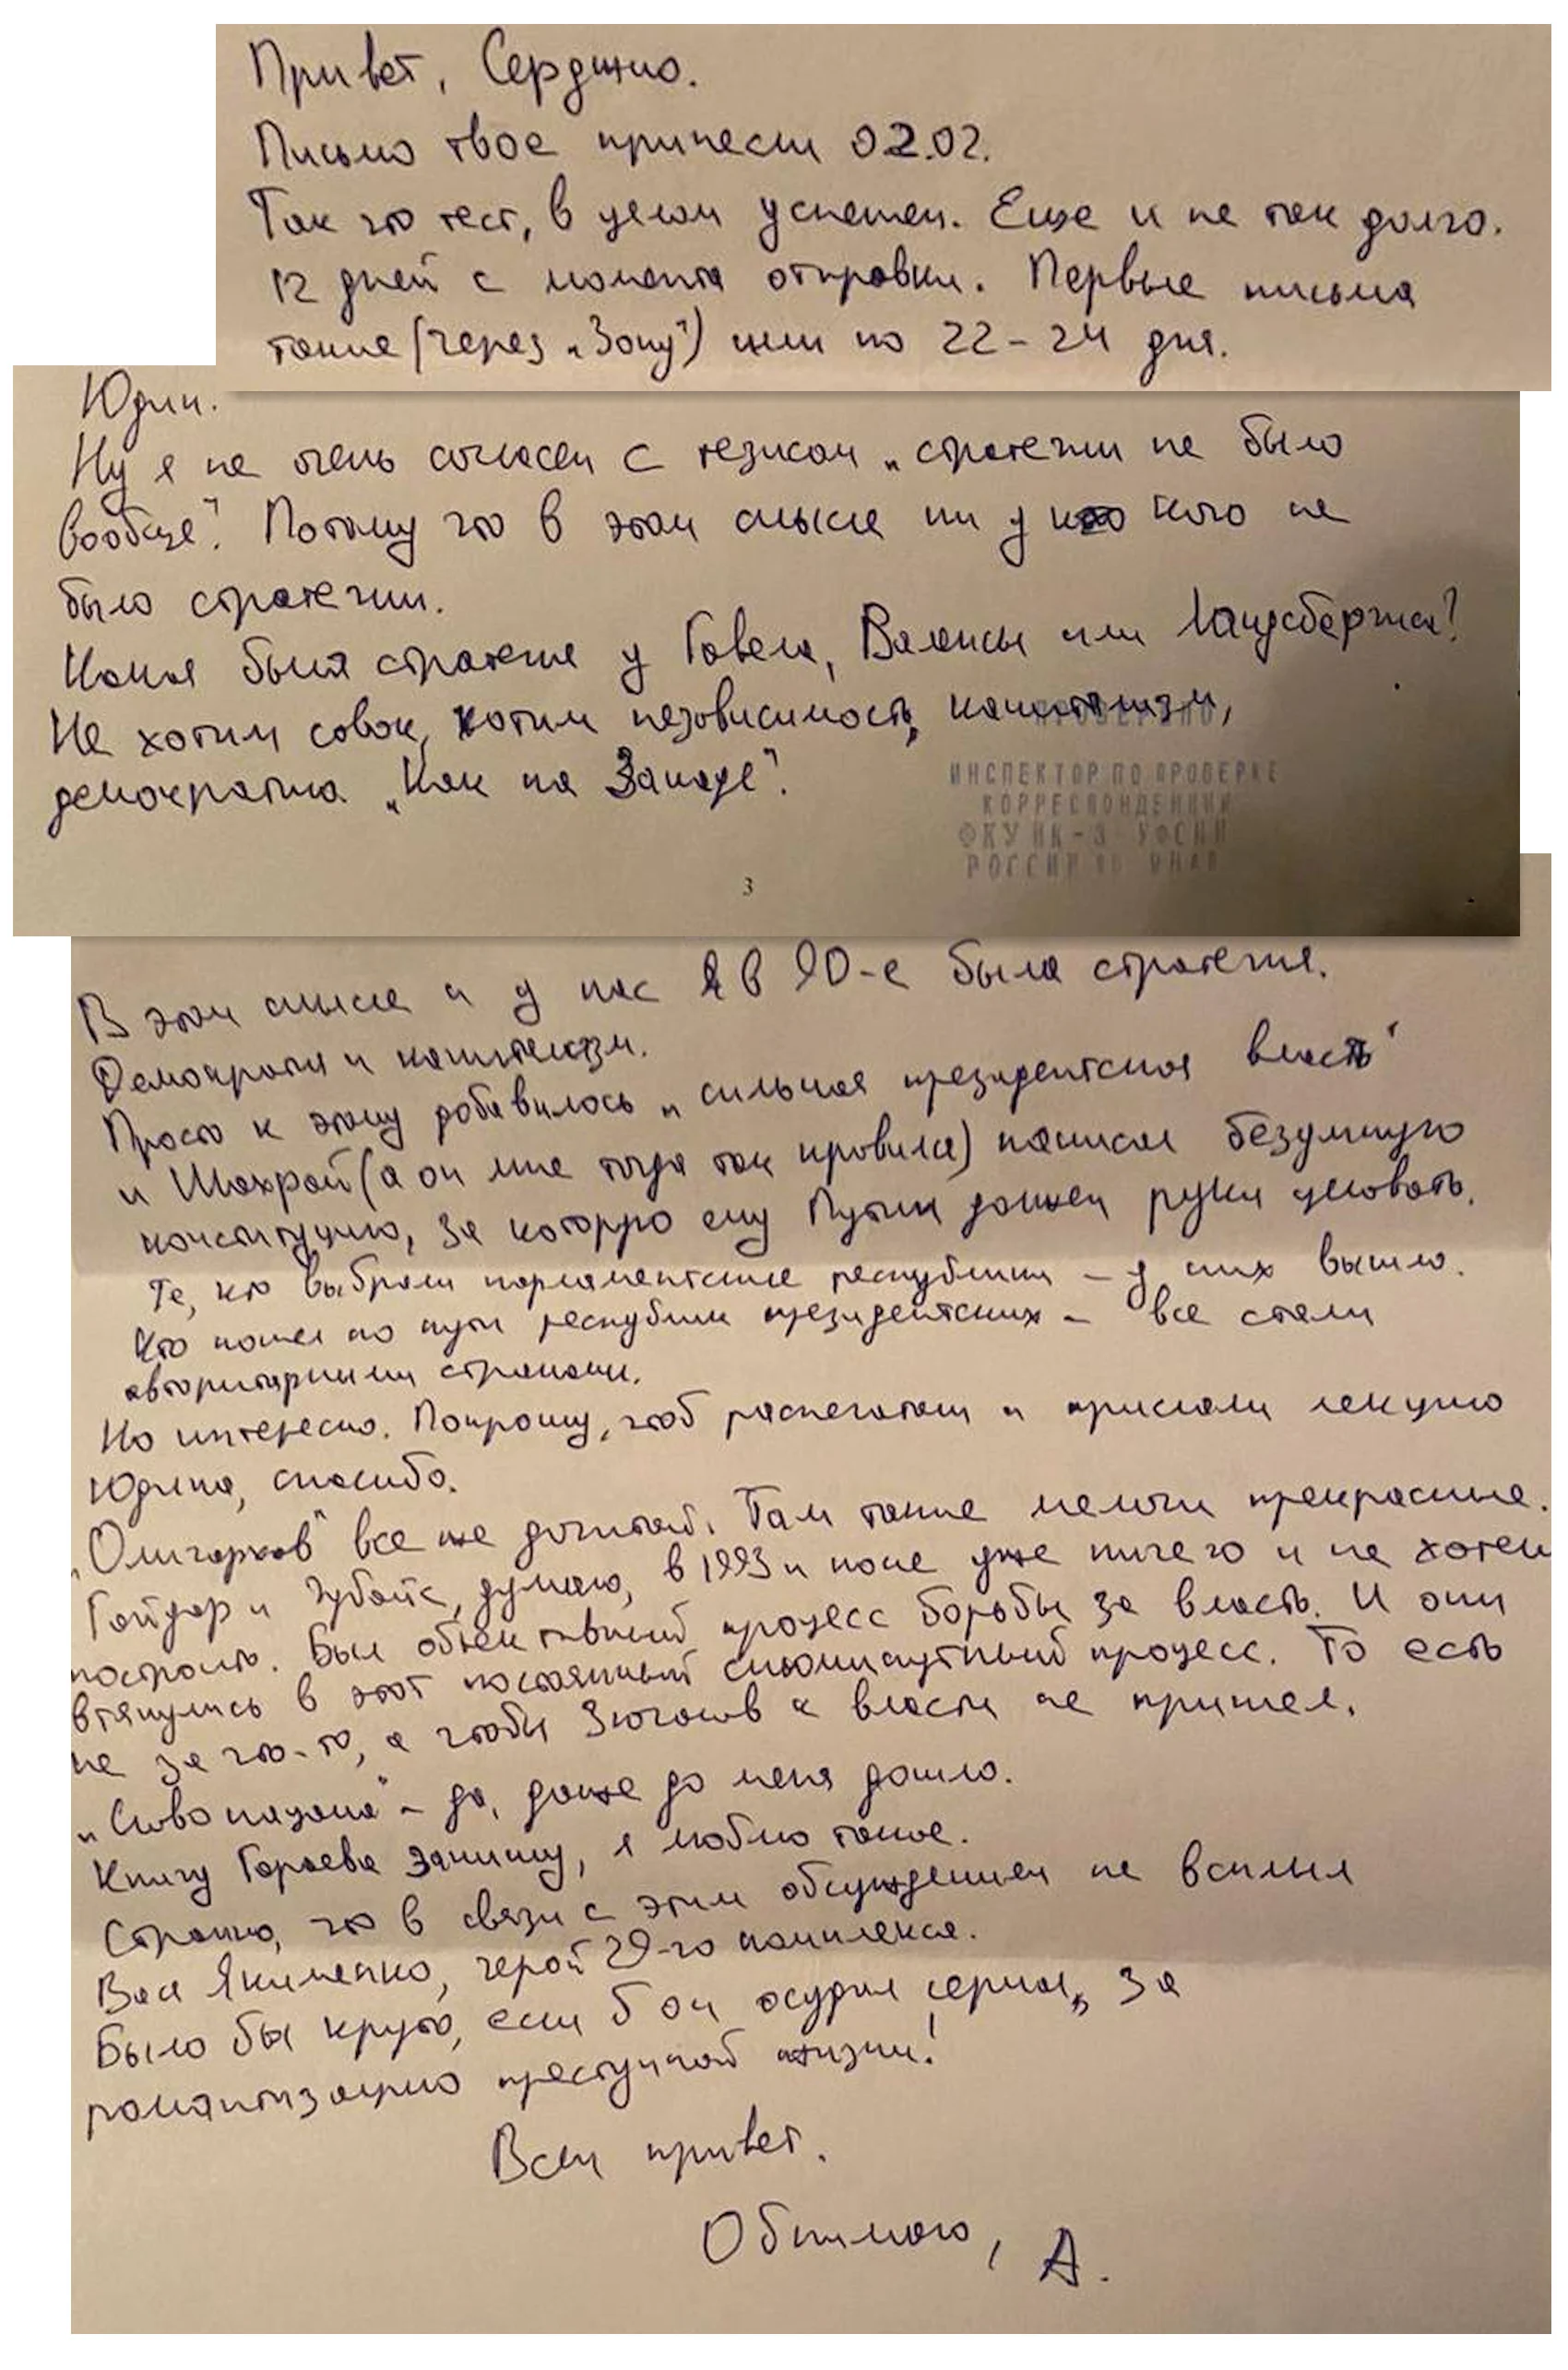 Привет, Серджио.
Письмо твое принесли 02.02.
Так что тест, в целом успешен. Еще и не так долго.
12 дней с момента отправки. Первые письма
такие (через „Зону") шли по 22-24 дня.
Юдин.
Ну я не очень согласен с тезисом „стратегии не было
вообще". Потому что в этом смысле ни у кого не
было стратегии.
Какая была стратегия у Гавела, Валенсы или Ландсбергиса?
Не хотим совок, хотим независимость, капитализм,
демократия „Как на Западе".
ИНСПЕКТОР ПО ПРОВЕРКЕ
КОРРЕСПОНДЕНЦИИ
ФКУ ИК-3 УФСИН
РОССИИ ПО ЯНАО
3
В этом смысле и у нас в 90-е была стратегия.
Демократия и капитализм.
Просто к этому добавилось „сильная президентская власть"
и Шахрай (а он мне тогда так нравился) написал безумную
конституцию, за которую ему Путин должен руки целовать.
Те, кто выбрали парламентские республики – у них вышло.
Кто пошел по пути республик президентских – все стали
авторитарными странами.
Но интересно. Попрошу, чтоб распечатали и прислали лекцию
Юдина, спасибо.
„Олигархов" все же дочитай. Там такие мелочи прекрасные.
Гайдар и Чубайс, думаю, в 1993 и после уже ничего и не хотели
построить. Был объективный процесс борьбы за власть. И они
втянулись в этот постоянный сиюминутный процесс. То есть
не за что-то, а чтобы Зюганов к власти не пришел.
„Слово пацана" – да, даже до меня дошло.
Книгу Гараева запишу, я люблю такое.
Странно, что в связи с этим обсуждением не всплыл
Вася Якименко, герой 29-го комплекса.
Было бы круто, если б он осудил сериал „за
романтизацию преступной жизни!
Всем привет.
Обнимаю, А.